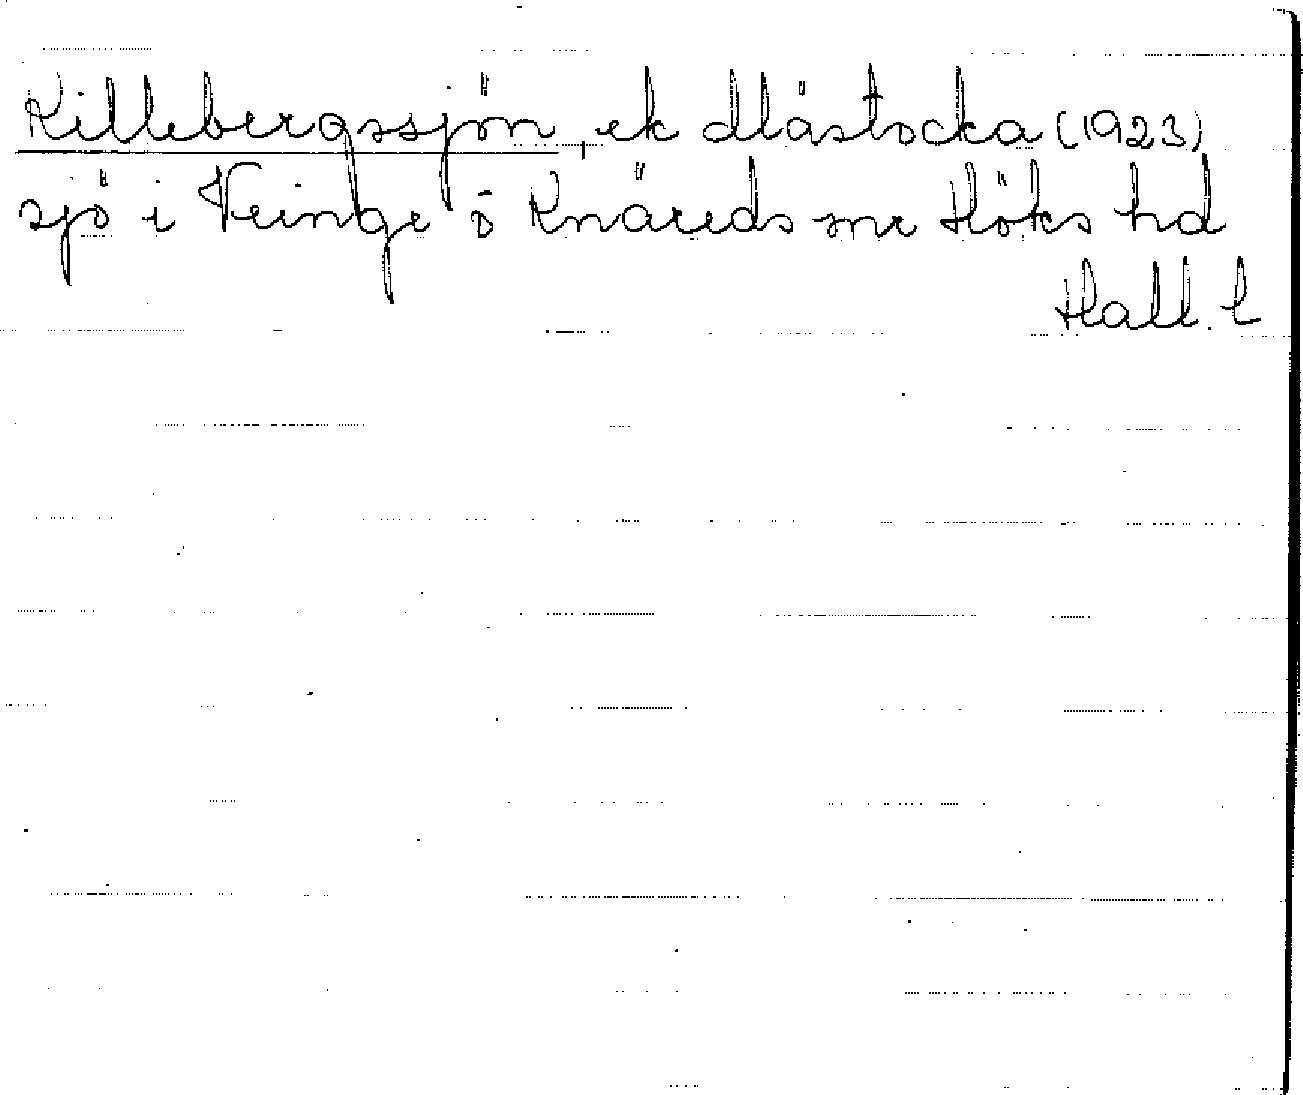 Killebergssjön, ek Mästocka (1923)
sjö i Veinge o Knäreds snr Höks hd
Hall. l